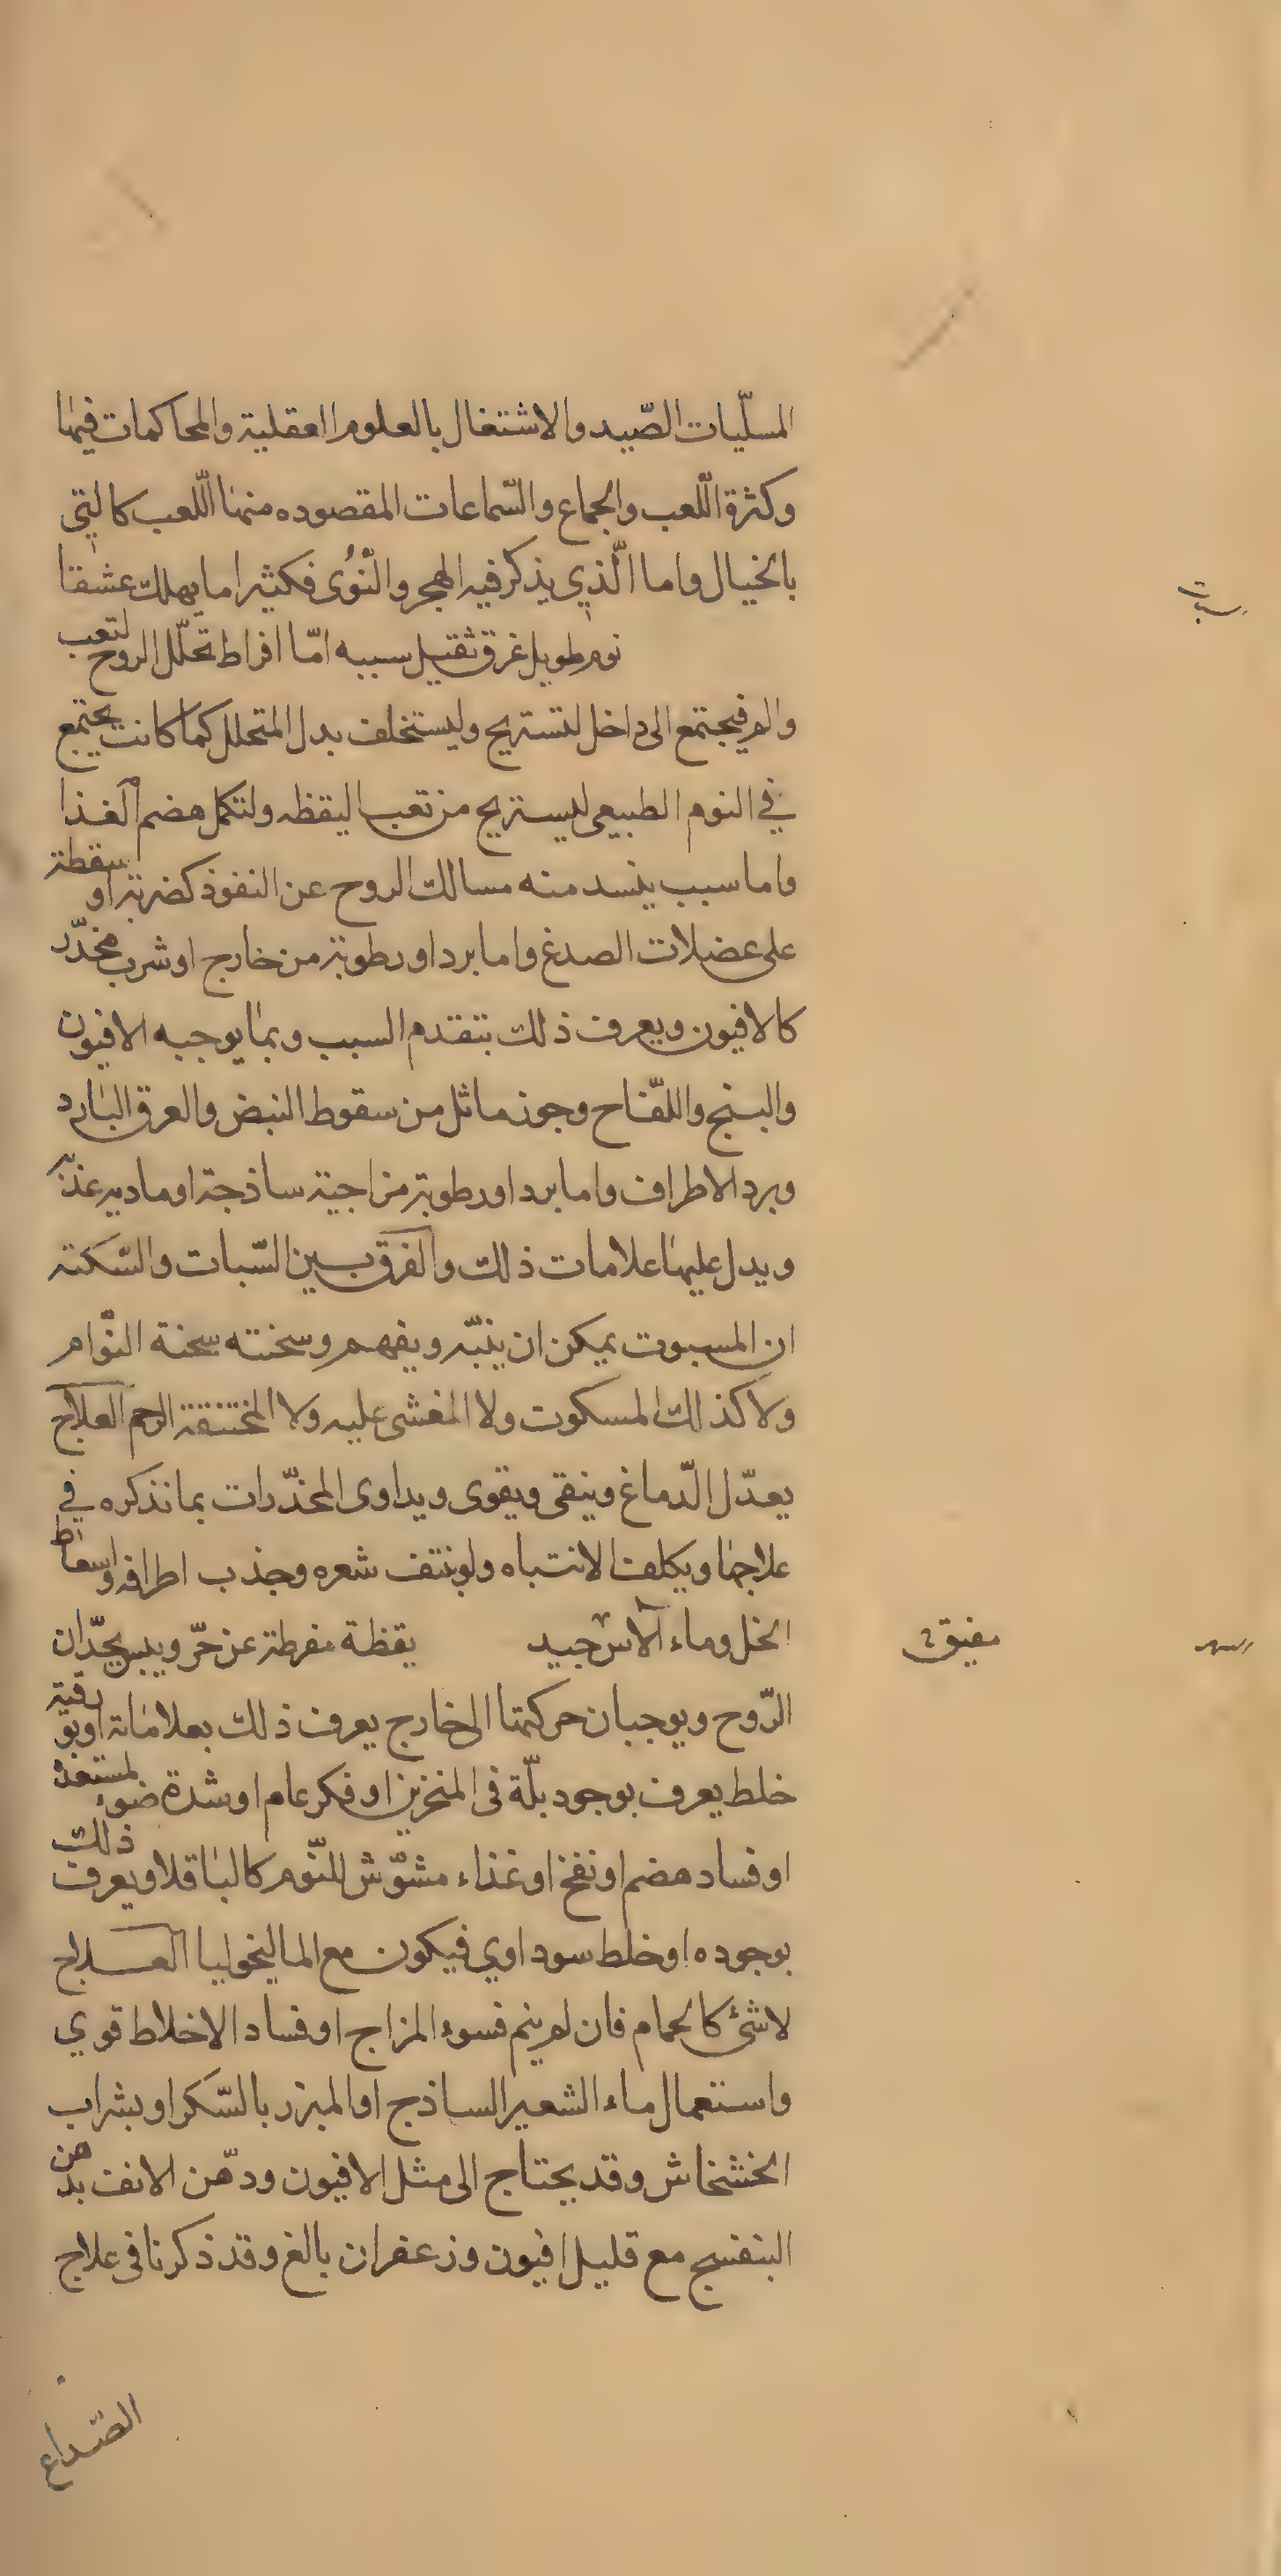 المسلّيات الصّيد والاشتغال بالعلوم العقلية والمحاكمات فيها
وكثرة اللّعب والجماع والسّماعات المقصوده منها اللّعب كالتي
بالخيال واما الّذي يذكر فيه الهجر والنّوى فكثيرا ما يهلك عشقا
سبات
نوم طويل غرق ثقيل سببه امّا افراط تحلّل الروح لتعب
والم فيجتمع الى داخل لتستريح وليستخلف بدل المتحلل كما كانت يجتمع
في النوم الطبيعى ليستريح من تعب اليقظه ولتكمل هضم الغذا
واما سبب ينسد منه مسالك الروح عن النفوذ كضربة او سقطة
على عضلات الصدغ واما برد او رطوبة من خارج او شرب مخدّر
كالافيون ويعرف ذلك بتقدم السبب وبما يوجبه الافيون
والبنج واللفّاح وجوز ماثل من سقوط النبض والعرق البارد
وبرد الاطراف واما برد او رطوبة مزاجية ساذجة او ماديه
ويدل عليها علامات ذلك والفرق بين السّبات والسّكتة
ان المسبوت يمكن ان ينبّه ويفهم وسحنته سحنة النوّام
ولا كذلك المسكوت ولا المغشى عليه ولا المختنقة الرحم العلاج
يعدّل الدّماغ وينقى ويقوى ويداوى المخدّرات بما نذكره في
علاجها ويكلف الانتباه ولو بنتف شعره وجذب اطرافه واسعاط
الخل وماء الآس جيد يقظة مفرطة عن حرّ ويبس يحدّان
مفيق
السهر
الرّوح ويوجبان حركتها الى خارج يعرف ذلك بعلاماته او بورقية
خلط يعرف بوجود بلّة فى المنخرين او فكر عام او شدة ضوء لمستعد
او فساد هضم او نفخ او غذاء مشوّش للنّوم كالباقلا ويعرف ذلك
بوجوده او خلط سوداوي فيكون مع الماليخوليا العلاج
لاشئ كالحمام فان لم ينم فسوء المزاج او فساد الاخلاط قوي
واستعمال ماء الشعير الساذج او المبزر بالسّكر او بشراب
الخشخاش وقد يحتاج الى مثل الافيون ودهّن الانف بدهن
البنفسج مع قليل افيون وزعفران بالغ وقد ذكرنا فى علاج
الصّداع